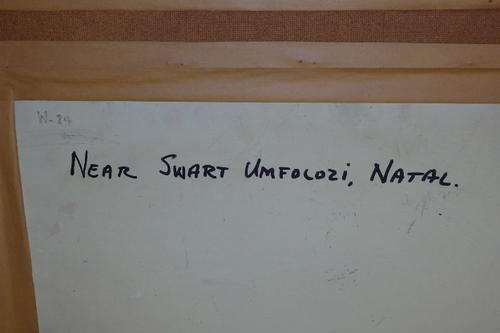 W-84
Near Swart Umfolozi, Natal.